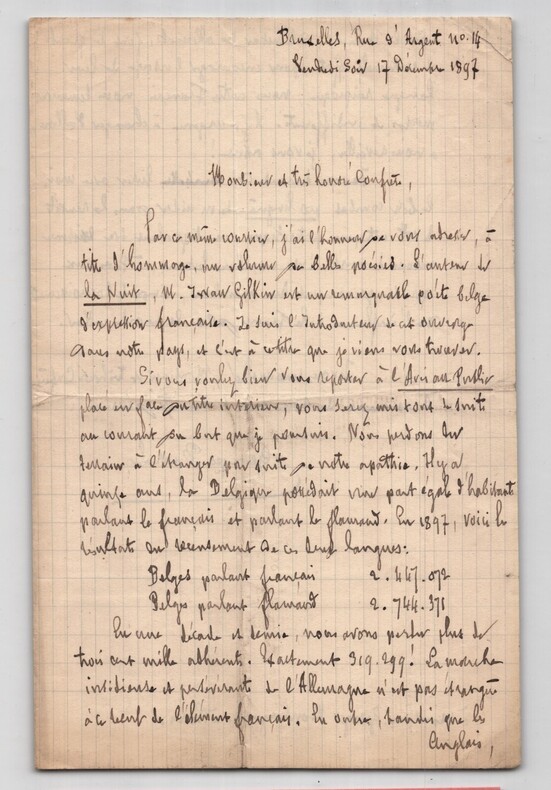 Bruxelles, Rue d'Argent no. 14
Vendredi Soir 17 Décembre 1897
Monsieur et très honoré Confrère,
Par ce même courrier, j'ai l'honneur de vous adresser, à
titre d'hommage, un volume de belles poésies. L'auteur de
la Nuit, M. Iwan Gilkin est un remarquable poète belge
d'expression française. Je suis l'Introducteur de cet ouvrage
dans notre pays, et c'est à ce titre que je viens vous trouver.
Si vous voulez bien vous reporter à l'Avis au Public
placé en face du titre intérieur, vous serez mis tout de suite
au courant du but que je poursuis. Nous perdons du
terrain à l'étranger par suite de notre apathie. Il y a
quinze ans, la Belgique possédait une part égale d'habitants
parlant le français et parlant le flamand. En 1897, voici le
résultat du recensement de ces deux langues:
Belges parlant français 2.447.072
Belges parlant flamand 2.744.371
En une décade et demie, nous avons perdu plus de
trois cent mille adhérents. Exactement 319.299! La marche
insidieuse et persévérante de l'Allemagne n'est pas étrangère
à ce recul de l'élément français. En outre, tandis que les
Anglais,